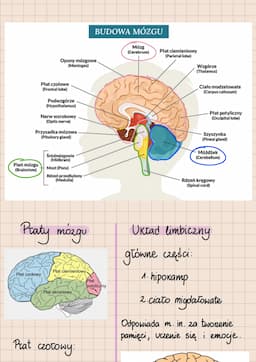 BUDOWA MÓZGU
Mózg
(Cerebrum)
Płat ciemieniowy
(Parietal lobe)
Opony mózgowe
(Meninges)
Wzgórze
(Thalamus)
Płat czołowe
(Frontal lobe)
Ciało modzelowate
(Corpus callosum)
Podwzgórze
(Hypothalamus)
Nerw wzrokowy
(Optic nerve)
Płat potyliczny
(Occipital lobe)
Przysadka mózgowa
(Pituitary gland)
Szyszynka
(Pineal gland)
Śródmózgowie
(Midbrain)
Most (Pons)
Rdzeń przedłużony
(Medulla)
Pień mózgu
(Brainstem)
Móżdżek
(Cerebellum)
Rdzeń kręgowy
(Spinal cord)
Płaty mózgu
Układ limbiczny
Płat czołowy
Płat ciemieniowy
Płat skroniowy
główne części:
1 hipokamp
2 ciało migdałowate
Odpowiada m. in. za tworzenie
pamięci, uczenie się i emocje...
Płat czołowy: